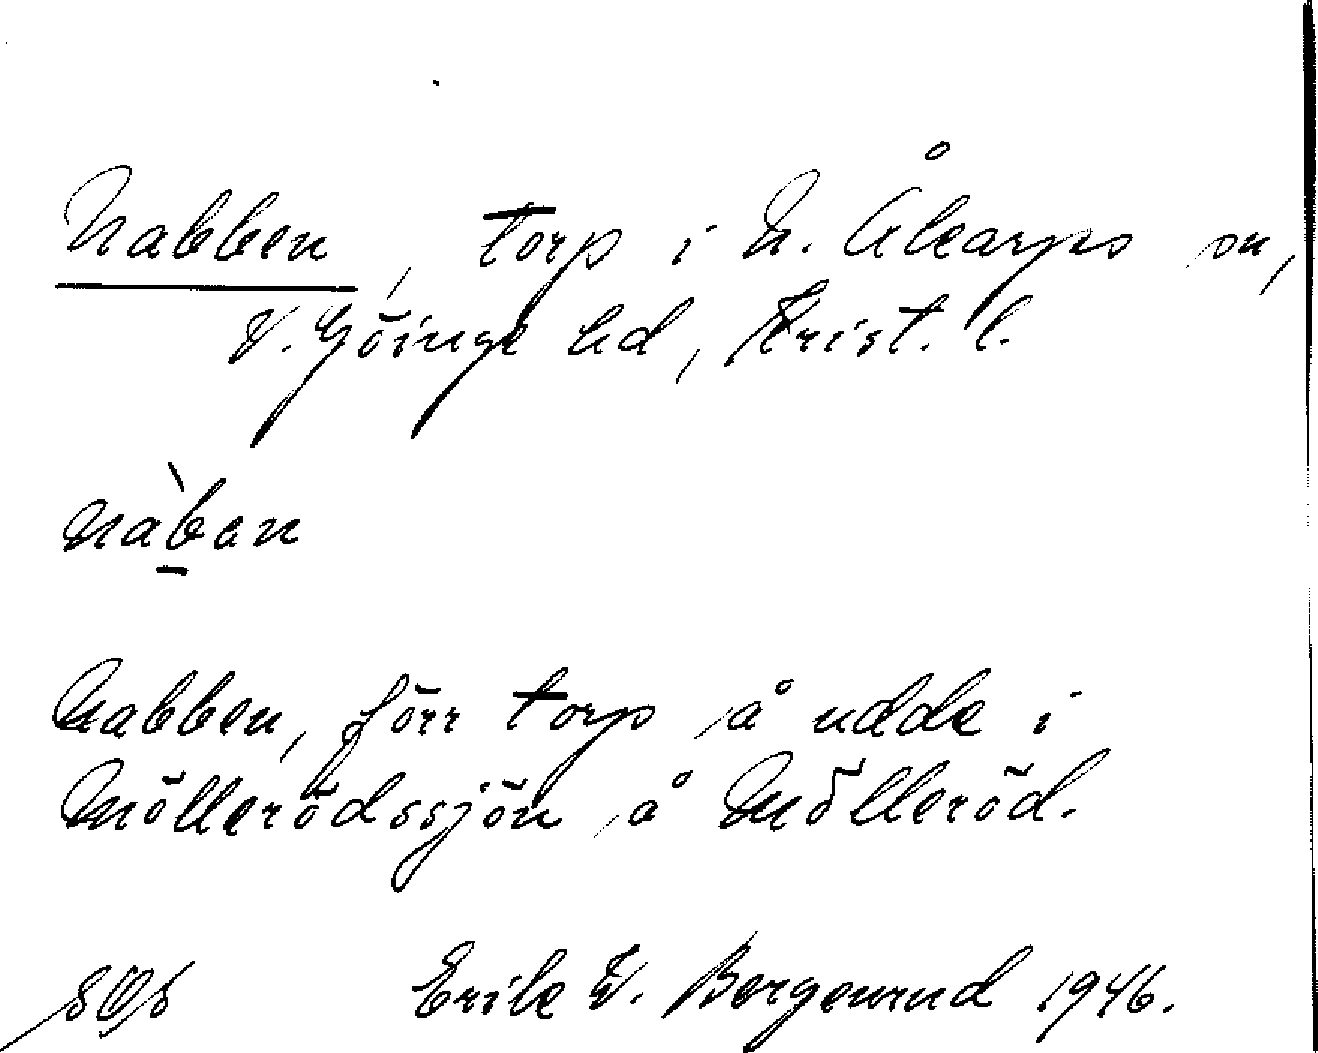 Nabben, torp i N. Åkarps sn,
V. Göinge hd, Krist. l.
nàban
Nabben, förr torp å udde i
Mölle​rödssjön å Mölleröd.
Erik W. Bergenrud 1946.